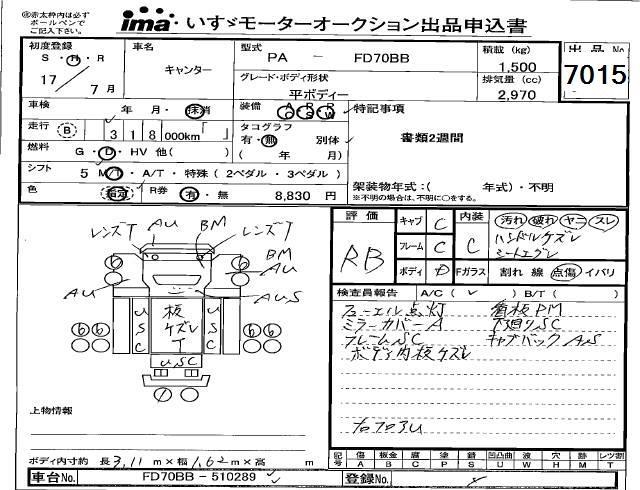 ㊟赤太枠内は必ず
ボールペンで
ご記入下さい。
ima いすゞモーターオークション出品申込書
初度登録
S・H・R
17 年 7月
車名
キャンター
型式
PA － FD70BB
グレード・ボディ形状
平ボディー
積載 (kg)
1,500
排気量 (cc)
2,970
出品No
7015
車検 年 月・抹消
装備 AC PS RW
特記事項
書類2週間
走行 B 318,000km「 」
タコグラフ
有・無 別体
( 年 月)
燃料 G・D・HV 他( )
シフト 5 M/T・A/T・特殊(2ペダル・3ペダル)
架装物年式:( 年式)・不明
※不明の場合は、不明に○をする。
色 指定 R券 有・無 8,830 円
評価 RB
キャブ C
フレーム C
ボディ D
内装 C
汚れ 破れ ヤニ スレ
ハンドルケズレ
シートエグレ
Fガラス 割れ 線 点傷 イバリ
レンズT AU BM レンズT
BM
AU
AU AUS
板
ケズレ
T
USC
USC
USC
6 6 6 6 6 6
検査員報告 A/C( ✓ ) B/T( )
フューエル点灯 看板PM
ミラーカバーA 下廻りSC
フレームSC キャブバックAS
ボディ内板ケズレ
右フロアU
上物情報
ボディ内寸約 長 3,11 m×幅 1,62 m×高 m
記号 傷A 板金B 腐C 塗P 錆S 凹凸曲U 波W 穴H 跡M レツ割T
車台No. FD70BB－510289
登録No.